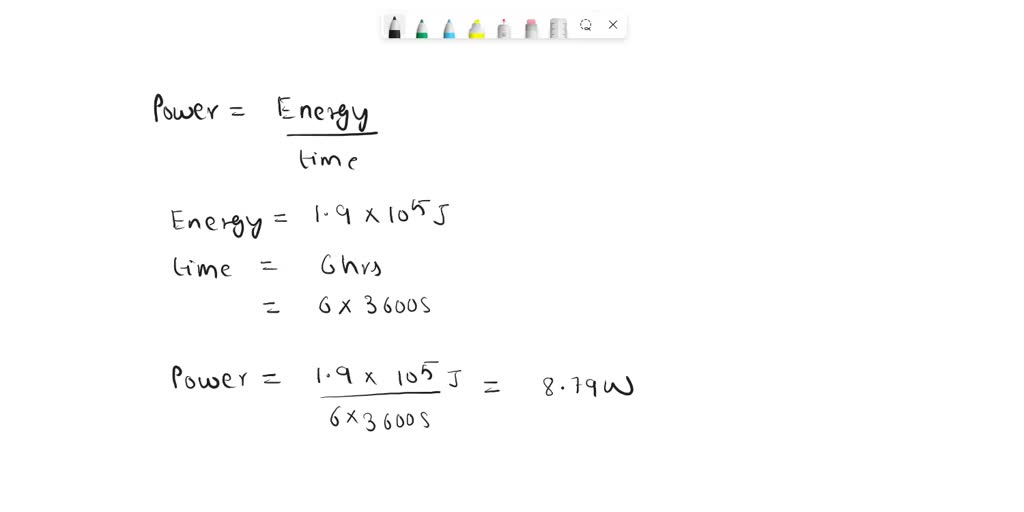 Power = Energy / time
Energy = 1.9 × 10⁵ J
time = 6 hrs
= 6 × 3600 s
Power = 1.9 × 10⁵ J / 6 × 3600 s = 8.79 W